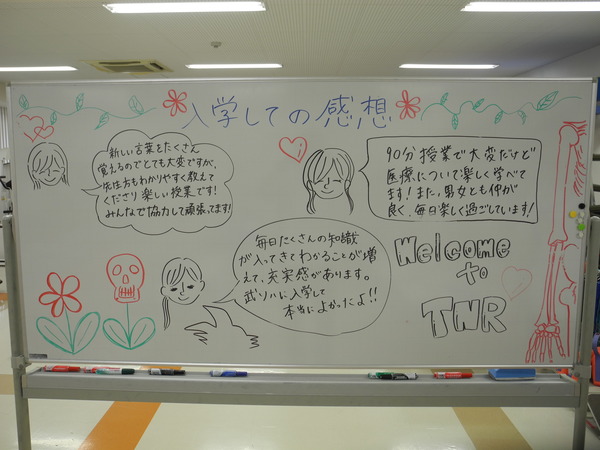 入学しての感想
新しい言葉をたくさん
覚えるのでとても大変ですが、
先生方もわかりやすく教えて
くださり楽しい授業です!
みんなで協力して頑張ってます!
90分授業で大変だけど
医療について楽しく学べて
ます!また、男女とも仲が
良く、毎日楽しく過ごしています!
毎日たくさんの知識
が入ってきてわかることが増
えて、充実感があります。
武リハに入学して
本当によかったよ!!
Welcome
to
TNR